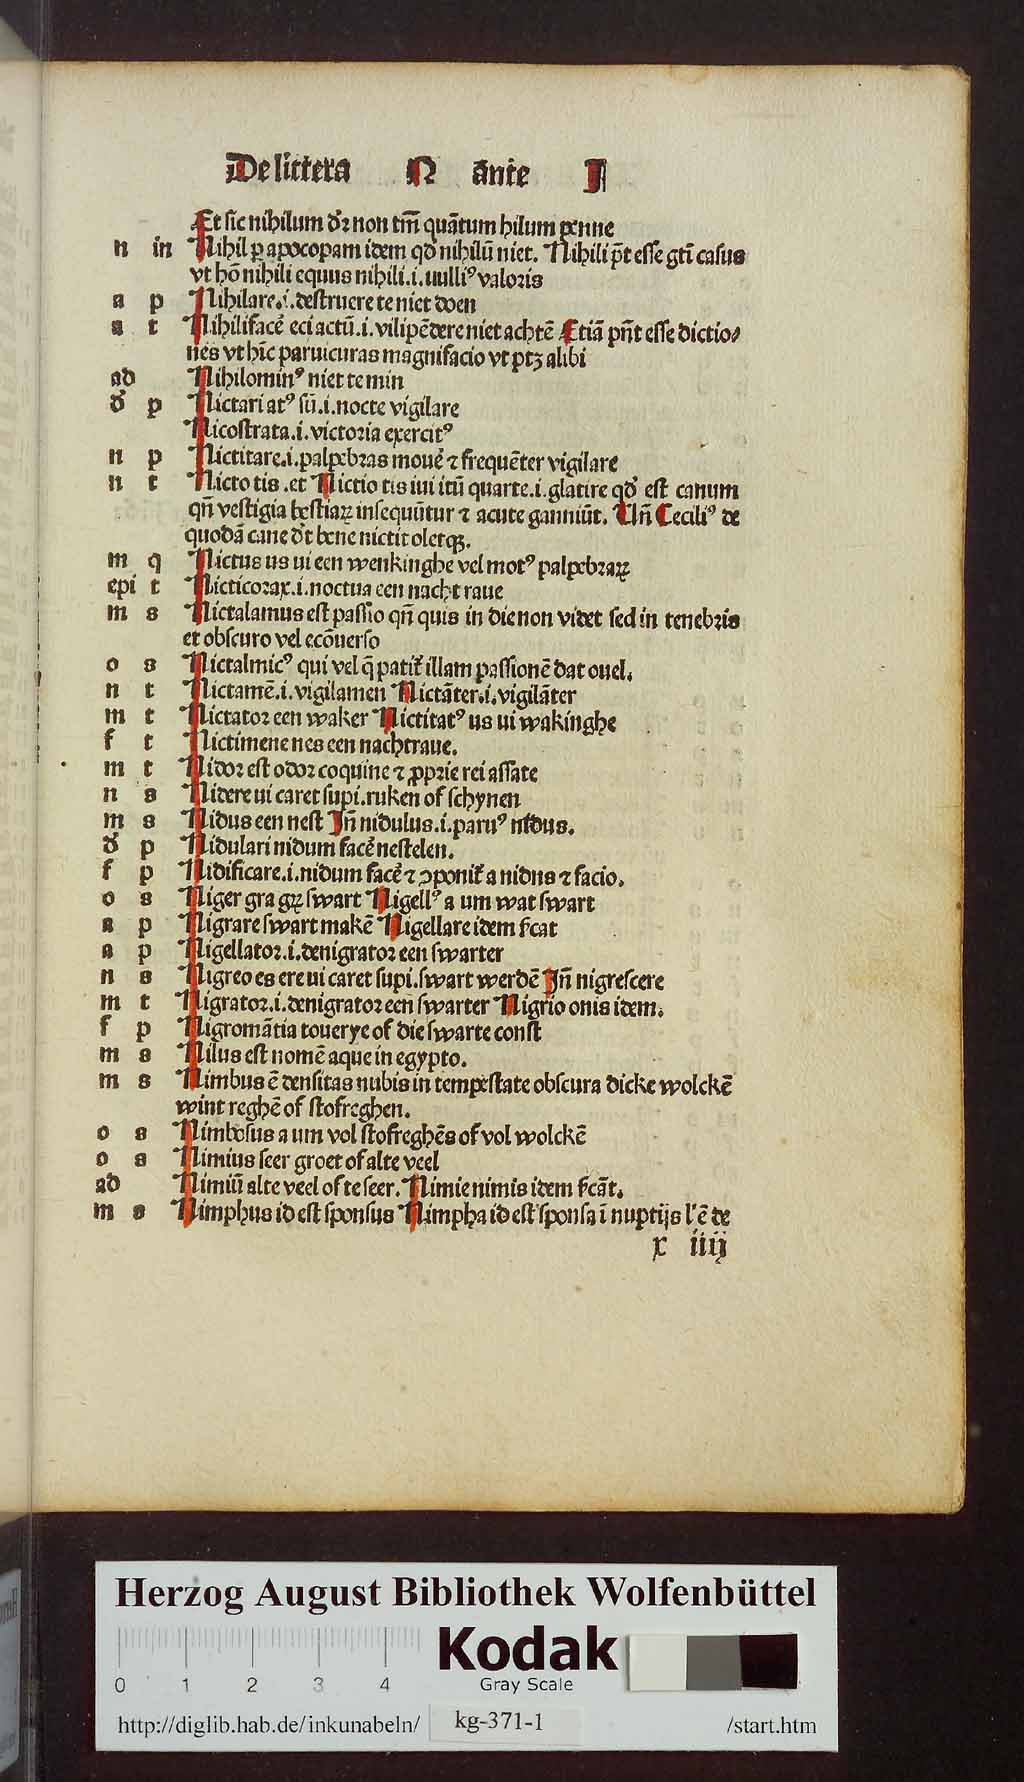 De littera N ãnte I
Et sic nihilum dꝛ non tm̃ quãtum hilum penne
n in Nihil ꝑ apocopam idem qd̓ nihilũ niet. Nihili p̃t esse gtĩ casus
vt hõ nihili equus nihili.i.nulliꝰ valoꝛis
a p Nihilare.i.destruere te niet doen
a t Nihilifacer̃ eci actũ.i.vilipẽdere niet achtẽ Etiã pñt esse dictio⸗
nes vt hĩc paruicuras magnifacio vt ptꝫ alibi
ad Nihilominꝰ niet te min
d̓ p Nictari atꝰ sũ.i.nocte vigilare
Nicostrata.i.victoꝛia exercitꝰ
n p Nictitare.i.palpebꝛas mouer̃ ⁊ frequẽter vigilare
n t Nicto tis .et Nictio tis iui itũ quarte.i.glatire qd̓ est canum
qñ vestigia bestiaꝝ insequũtur ⁊ acute ganniũt. Uñ Ceciliꝰ de
quodã cane d̓t bene nictit oletqꝫ.
m q Nictus us ui een wenkinghe vel motꝰ palpebꝛaꝝ
epi t Nicticoꝛax.i.noctua een nacht raue
m s Nictalamus est passio qñ quis in die non videt sed in tenebꝛis
et obscuro vel ecõuerso
o s Nictalmicꝰ qui vel q̃ patit̃ illam passionẽ dat ouel.
n t Nictamẽ.i.vigilamen Nictãter.i.vigilãter
m t Nictatoꝛ een waker Nictitatꝰ us ui wakinghe
f t Nictimene nes een nachtraue.
m t Nidoꝛ est odoꝛ coquine ⁊ ꝓpꝛie rei assate
n s Nidere ui caret supi.ruken of schynen
m s Nidus een nest Iñ nidulus.i.paruꝰ nidus.
d̓ p Nidulari nidum facer̃ nestelen.
f p Nidificare.i.nidum facer̃ ⁊ ꝯponit̃ a nidus ⁊ facio.
o s Niger gra gꝝ swart Nigellꝰ a um wat swart
a p Nigrare swart makẽ Nigellare idem s̃cat
a p Nigellatoꝛ.i.denigratoꝛ een swarter
n s Nigreo es ere ui caret supi.swart werdẽ Iñ nigrescere
m t Nigratoꝛ.i.denigratoꝛ een swarter Nigrio onis idem.
f p Nigromãtia touerye of die swarte const
m s Nilus est nomẽ aque in egypto.
m s Nimbus ẽ densitas nubis in tempestate obscura dicke wolckẽ
wint reghẽ of stofreghen.
o s Nimbosus a um vol stofreghẽs of vol wolckẽ
o s Nimius seer groet of alte veel
ad Nimiũ alte veel of te seer. Nimie nimis idem s̃cãt.
m s Nimphus id est sponsus Nimpha id est sponsa ĩ nuptijs l' ẽ de
x iiij
Herzog August Bibliothek Wolfenbüttel
0 1 2 3 4
Kodak
Gray Scale
http://diglib.hab.de/inkunabeln/ kg-371-1 /start.htm